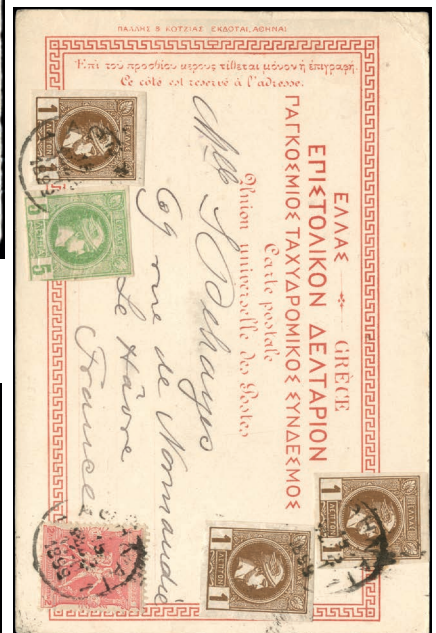 ΠΑΛΛΗΣ & ΚΟΤΖΙΑΣ ΕΚΔΟΤΑΙ, ΑΘΗΝΑΙ
Ἐπὶ τοῦ προσθίου μέρους τίθεται μόνον ἡ ἐπιγραφή.
Ce côté est reservé à l'adresse.
ΕΛΛΑΣ GRÈCE
ΕΠΙΣΤΟΛΙΚΟΝ ΔΕΛΤΑΡΙΟΝ
ΠΑΓΚΟΣΜΙΟΣ ΤΑΧΥΔΡΟΜΙΚΟΣ ΣΥΝΔΕΣΜΟΣ
Carte postale
Union universelle des Postes
Mlle S Dehayes
69 rue de Normandie
Le Hâvre
France
1 ΛΕΠΤΟΝ 1
ΕΛΛΑΣ
5 ΛΕΠΤΑ 5
ΕΛΛΑΣ
1 ΛΕΠΤΟΝ 1
ΕΛΛΑΣ
1 ΛΕΠΤΟΝ 1
ΕΛΛΑΣ
2